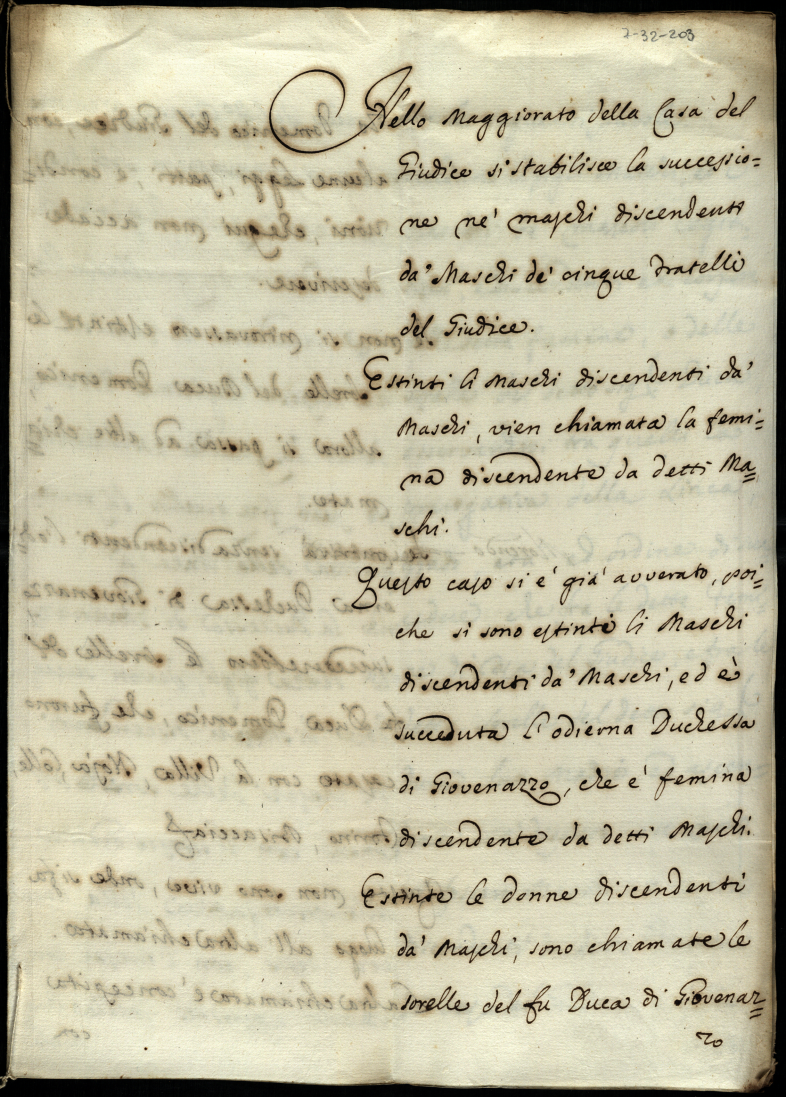 7-32-203
Nello Maggiorato della Casa del
Giudice si stabilisce la successio=
ne ne' maschi discendenti
da' Maschi de' cinque Fratelli
del Giudice.
Estinti li Maschi discendenti da'
Maschi, vien chiamata la femi=
na discendente da detti Ma=
schi.
Questo caso si e' già avverato, poi=
che si sono estinti li Maschi
discendenti da' Maschi, ed è
succeduta l'odierna Duchessa
di Giovenazzo, che e' femina
discendente da detti Maschi.
Estinte le donne discendenti
da' Maschi, sono chiamate le
sorelle del fu Duca di Giovenaz=
zo